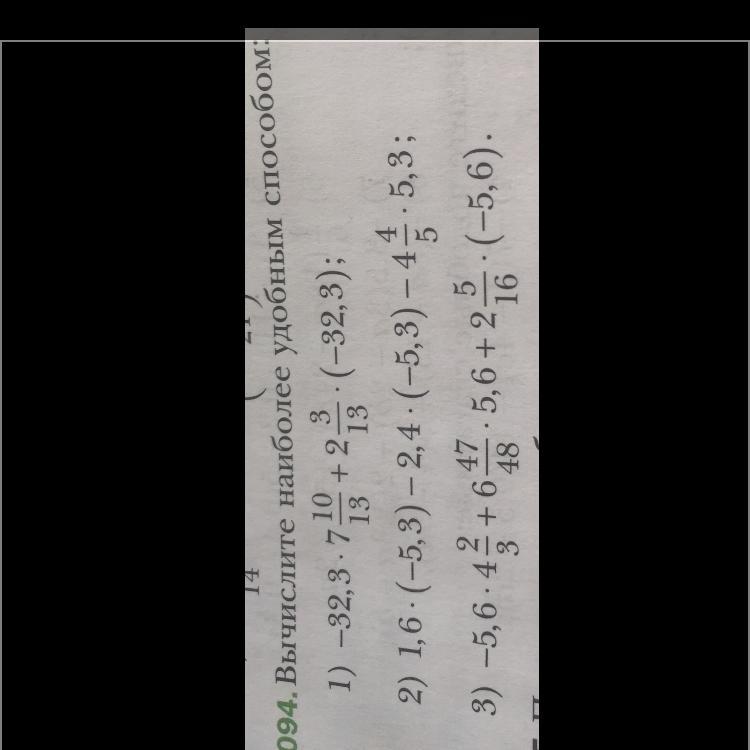 094. Вычислите наиболее удобным способом:
1) −32,3 · 7 10/13 + 2 3/13 · (−32,3);
2) 1,6 · (−5,3) − 2,4 · (−5,3) − 4 4/5 · 5,3;
3) −5,6 · 4 2/3 + 6 47/48 · 5,6 + 2 5/16 · (−5,6).